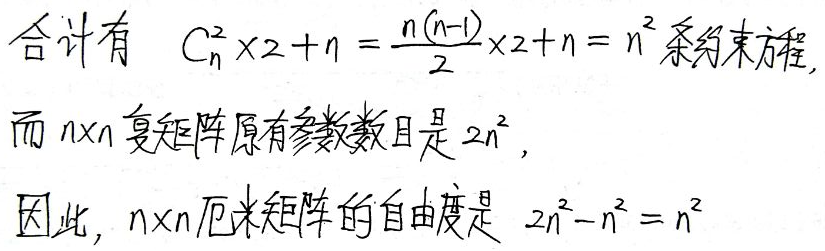 合计有 C_n^2 × 2 + n = \frac{n(n-1)}{2} × 2 + n = n^2 条约束方程,
而 n×n 复矩阵原有参数数目是 2n^2,
因此, n×n 厄米矩阵的自由度是 2n^2 - n^2 = n^2